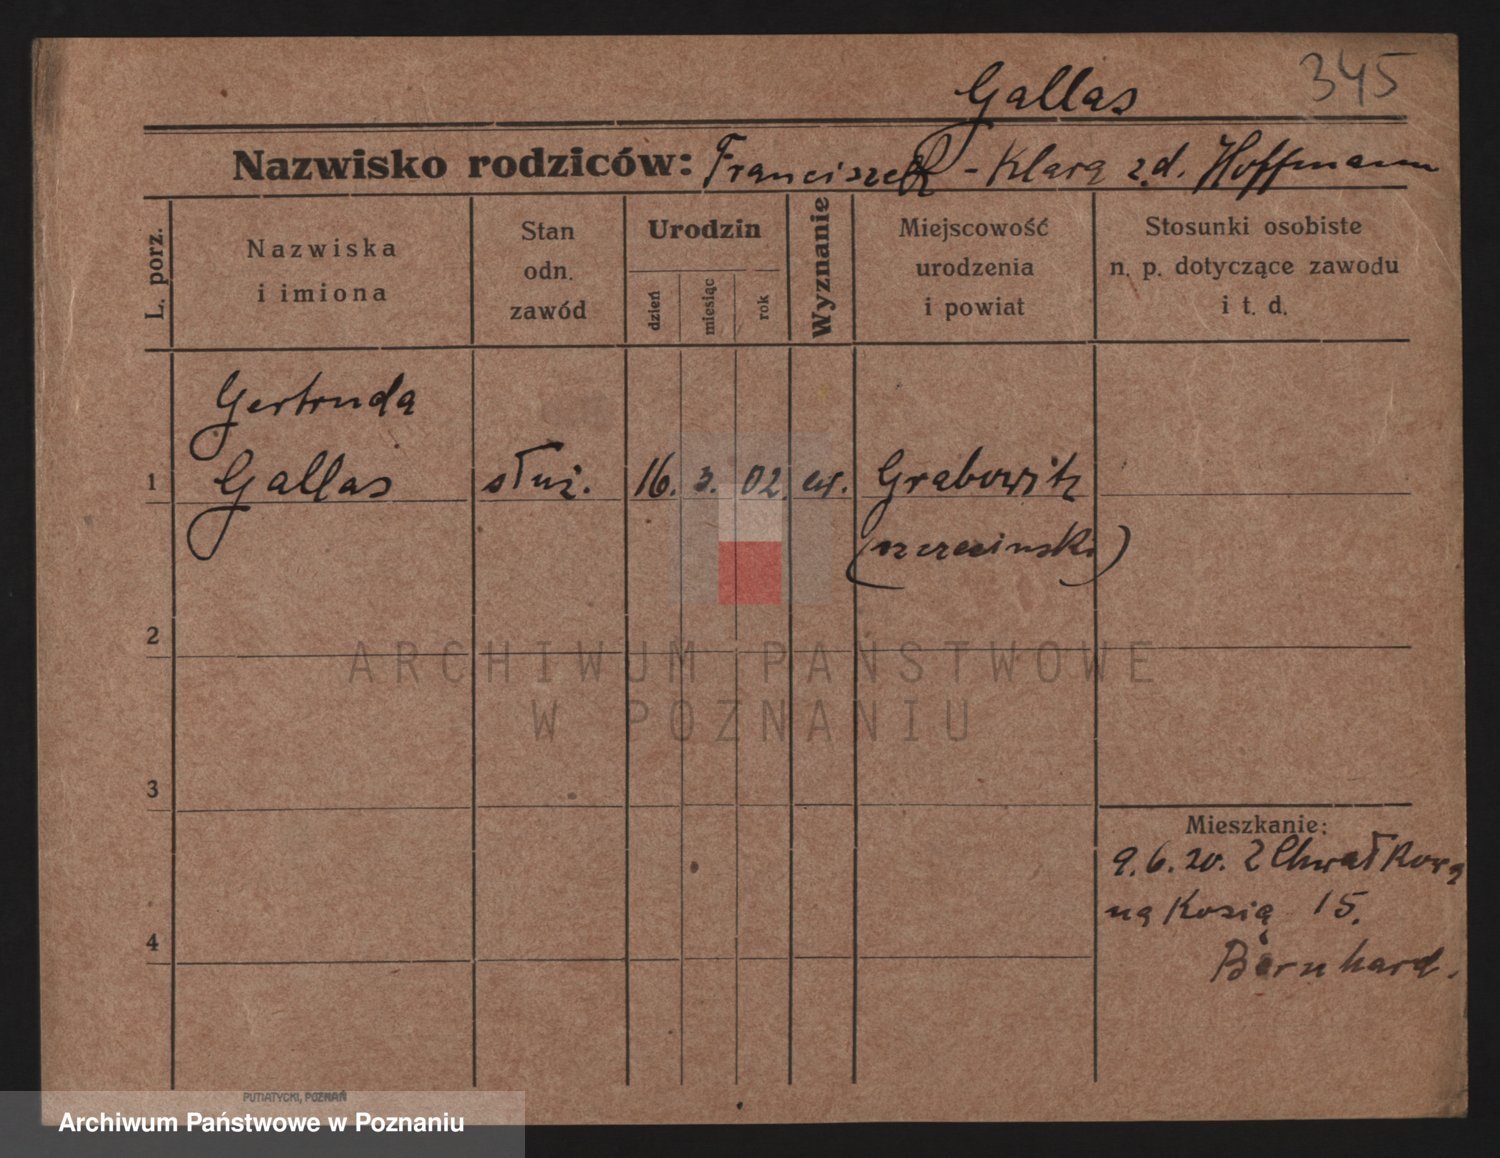 345
Gallas
Nazwisko rodziców: Franciszek - Klara z.d. Hoffmann
L. porz.
Nazwiska
i imiona
Stan
odn.
zawód
Urodzin
dzień
miesiąc
rok
Wyznanie
Miejscowość
urodzenia
i powiat
Stosunki osobiste
n. p. dotyczące zawodu
i t. d.
Gertruda
1 Gallas służ. 16. 3. 02. ew. Grabowitz
2
3
4
Mieszkanie:
9.6.20. z Chwałkowa
na Kozią 15.
Bernhard.
ARCHIWUM PAŃSTWOWE
W POZNANIU
PUTIATYCKI, POZNAŃ
Archiwum Państwowe w Poznaniu